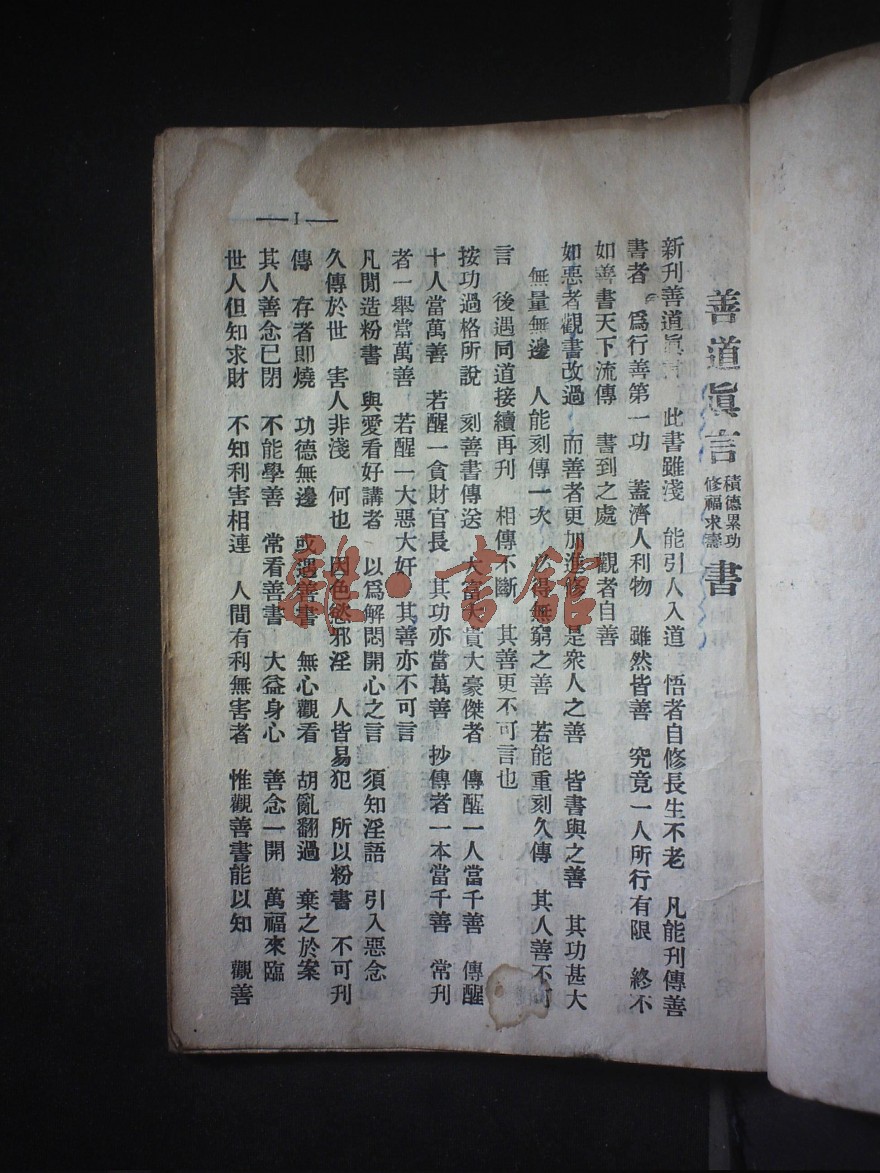 善道眞言 積德累功 修福求壽 書
新刊善道眞言 此書雖淺 能引人入道 悟者自修長生不老 凡能刊傳善
書者 爲行善第一功 蓋濟人利物 雖然皆善 究竟一人所行有限 終不
如善書天下流傳 書到之處 觀者自善
如惡者觀書改過 而善者更加進修 是衆人之善 皆書與之善 其功甚大
無量無邊 人能刻傳一次 必得無窮之善 若能重刻久傳 其人善不可
言 後遇同道接續再刊 相傳不斷 其善更不可言也
按功過格所說 刻善書傳送 大富大貴大豪傑者 傳醒一人當千善 傳醒
十人當萬善 若醒一貪財官長 其功亦當萬善 抄傳者一本當千善 常刊
者一舉當萬善 若醒一大惡大奸 其善亦不可言
凡閒造粉書 與愛看好講者 以爲解悶開心之言 須知淫語 引入惡念
久傳於世 害人非淺 何也 因色慾邪淫 人皆易犯 所以粉書 不可刊
傳 存者即燒 功德無邊 或遇善書 無心觀看 胡亂翻過 棄之於案
其人善念已閉 不能學善 常看善書 大益身心 善念一開 萬福來臨
世人但知求財 不知利害相連 人間有利無害者 惟觀善書能以知 觀善
— 1 —
雜·書館